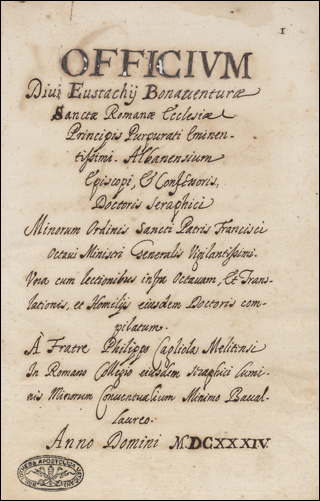 1
OFFICIVM
Divi Eustachij Bonaventuræ
Sanctæ Romanæ Ecclesiæ
Principis Purpurati Eminen-
tissimi. Albanensium
Episcopi, & Confessoris,
Doctoris Seraphici
Minorum Ordinis Sancti Patris Francisci
Octavi Ministri Generalis Vigilantissimi.
Una cum lectionibus infra Octavam, Et Trans-
lationis, et Homilijs eiusdem Doctoris com-
pilatum.
À Fratre Philippo Cagliola Melitensi
In Romano Collegio eiusdem Seraphici lumi-
nis Minorum Conventualium Minimo Baccal-
laureo.
Anno Domini MDCXXXIV.
BIBLIOTHECA APOSTOLICA VATICANA